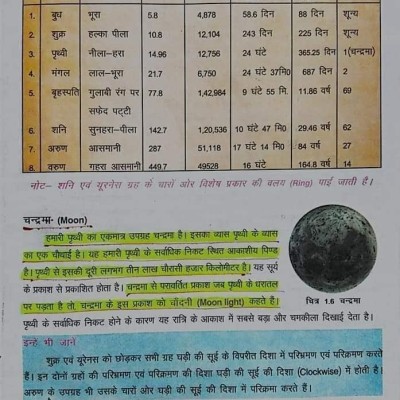 1. बुध भूरा 5.8 4,878 58.6 दिन 88 दिन शून्य
2. शुक्र हल्का पीला 10.8 12,104 243 दिन 225 दिन शून्य
3. पृथ्वी नीला-हरा 14.96 12,756 24 घंटे 365.25 दिन 1(चन्द्रमा)
4. मंगल लाल-भूरा 21.7 6,750 24 घंटे 37मि0 687 दिन 2
5. बृहस्पति गुलाबी रंग पर 77.8 1,42,984 9 घंटे 55 मि. 11.86 वर्ष 69
सफेद पट्टी
6- शनि सुनहरा-पीला 142.7 1,20,536 10 घंटे 47 मि0 29.46 वर्ष 62
7. अरुण आसमानी 287 51,118 17 घंटे 14 मि0 84 वर्ष 27
8- वरुण गहरा आसमानी 449.7 49528 16 घंटे 164.8 वर्ष 14
नोट- शनि एवं यूरेनस ग्रह के चारों ओर विशेष प्रकार की वलय (Ring) पाई जाती है।
चन्द्रमा- (Moon)
हमारी पृथ्वी का एकमात्र उपग्रह चन्द्रमा है। इसका व्यास पृथ्वी के व्यास
का एक चौथाई है। यह हमारी पृथ्वी के सर्वाधिक निकट स्थित आकाशीय पिण्ड
है। पृथ्वी से इसकी दूरी लगभग तीन लाख चौरासी हजार किलोमीटर है। यह सूर्य
के प्रकाश से प्रकाशित होता है। चन्द्रमा से परावर्तित प्रकाश जब पृथ्वी के धरातल
पर पड़ता है तो, चन्द्रमा के इस प्रकाश को चाँदनी (Moon light) कहते हैं।
पृथ्वी के सर्वाधिक निकट होने के कारण यह रात्रि के आकाश में सबसे बड़ा और चमकीला दिखाई देता है।
चित्र 1.6 चन्द्रमा
इन्हें भी जानें
शुक्र एवं यूरेनस को छोड़कर सभी ग्रह घड़ी की सूई के विपरीत दिशा में परिभ्रमण एवं परिक्रमण करते
हैं। इन दोनों ग्रहों की परिभ्रमण एवं परिक्रमण की दिशा घड़ी की सूई की दिशा (Clockwise) में होती है।
अरुण के उपग्रह भी उसके चारों ओर घड़ी की सूई की दिशा में परिक्रमा करते हैं।